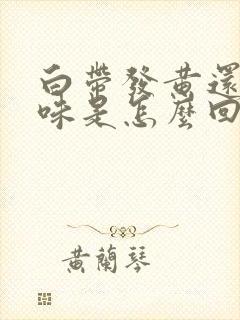 白帶發黃還
味是怎麼回
黃蘭琴